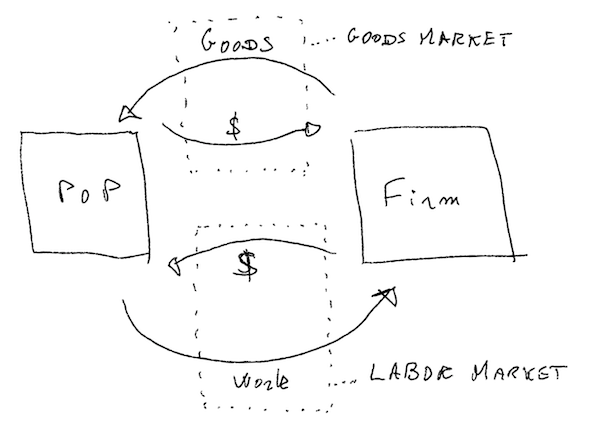 GOODS
GOODS MARKET
$
POP
Firm
$
Work
LABOR MARKET